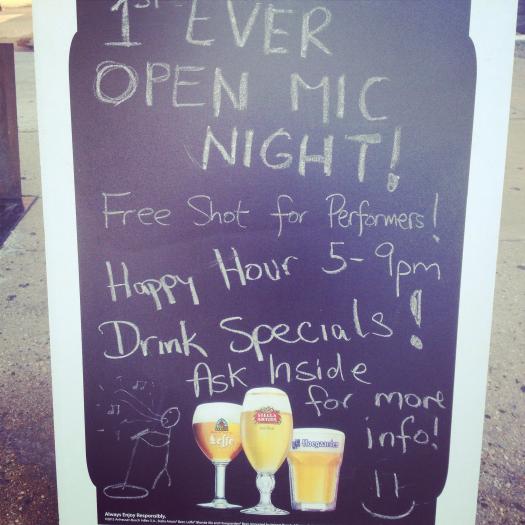 1st EVER
OPEN MIC
NIGHT!
Free Shot for Performers!
Happy Hour 5-9pm
Drink Specials!
Ask Inside
for more
info!
Leffe
STELLA
ARTOIS
Hoegaarden
Always Enjoy Responsibly.